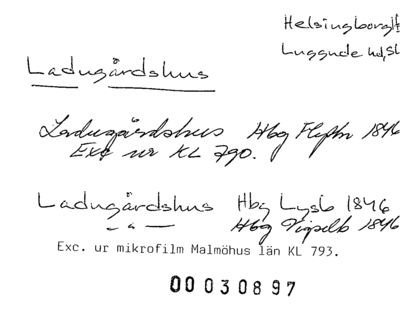 Helsingborg
Luggude hd, Sk
Ladugårdshus
Ladugårdshus Hbg Flyttn 1846
Exc ur KL 790.
Ladugårdshus Hbg Lysb 1846
— " — Hbg Vigselb 1846
Exc. ur mikrofilm Malmöhus län KL 793.
00030897